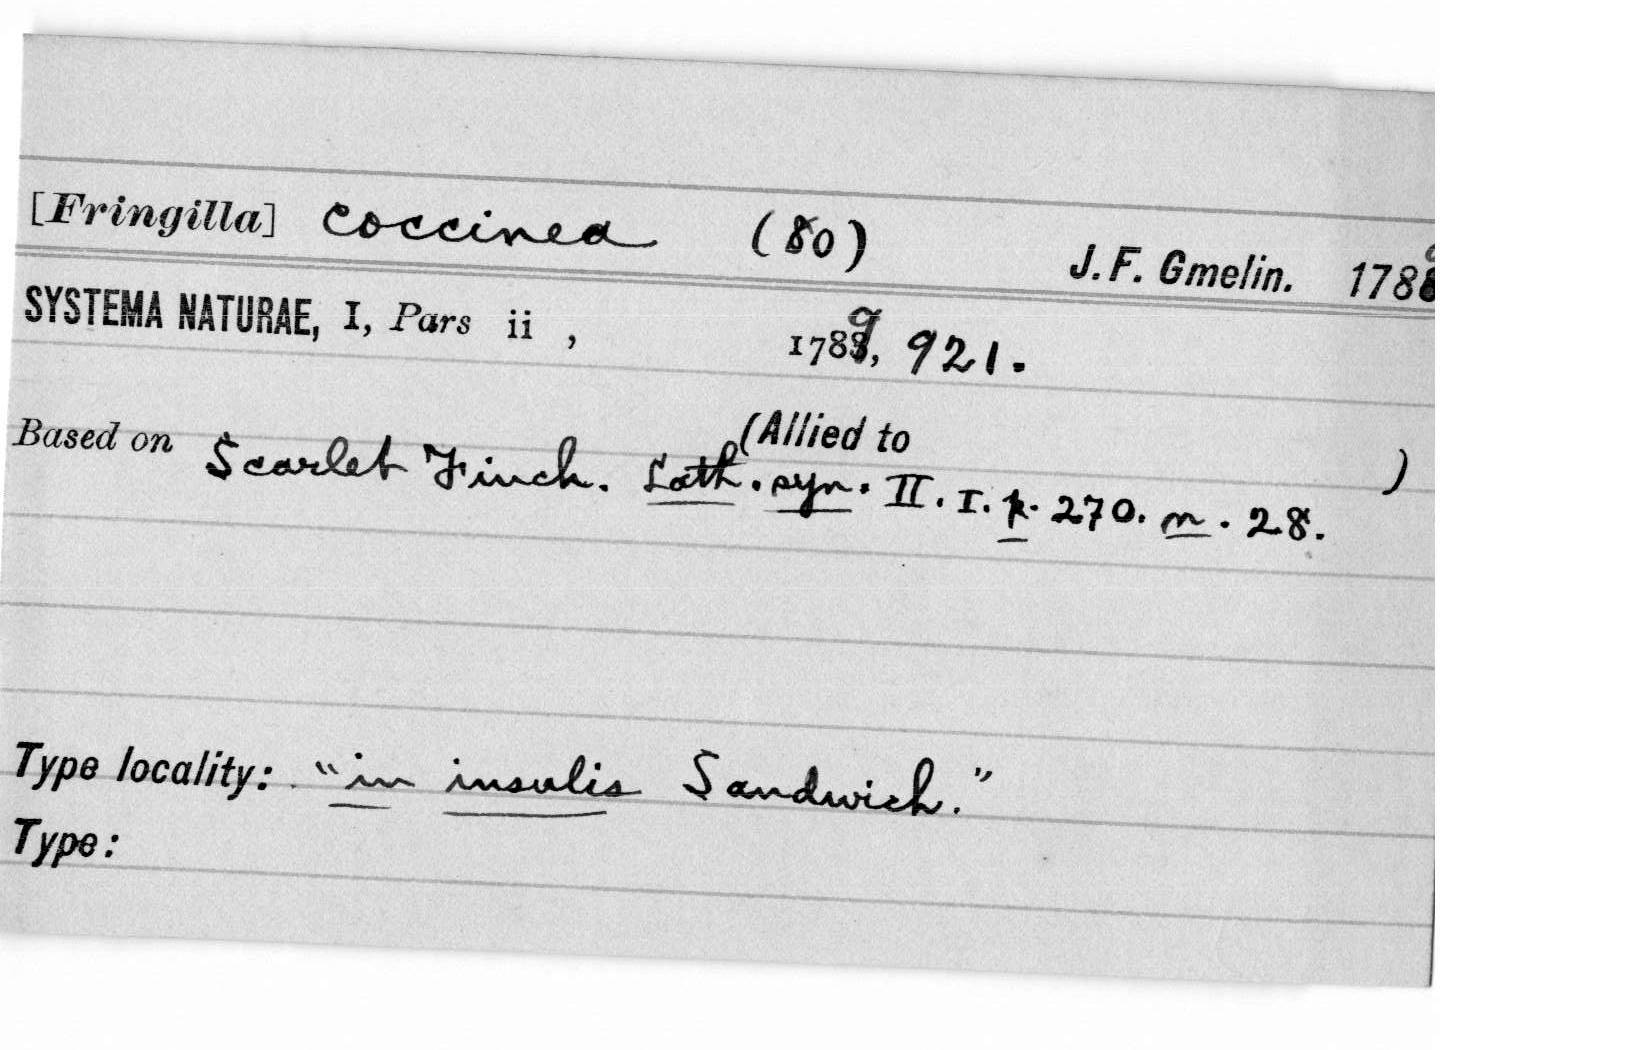 [Fringilla] coccinea (80) J. F. Gmelin. 178
SYSTEMA NATURAE, I, Pars ii , 1789, 921.
(Allied to )
Based on Scarlet Finch. Lath. syn. II. I. p. 270. n. 28.
Type locality: "in insulis Sandwich."
Type: